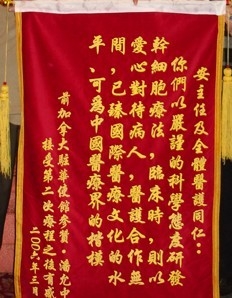 安主任及全體醫護同仁：
你們以嚴謹的科學態度研發
幹細胞療法，臨床時，則以
愛心對待病人，醫護合作無
間，已臻國際醫療文化的水
平、可爲中國醫療界的楷模
前加拿大駐華使館參贊·潘允中
接受第二次療程之後有感
二〇〇六年三月